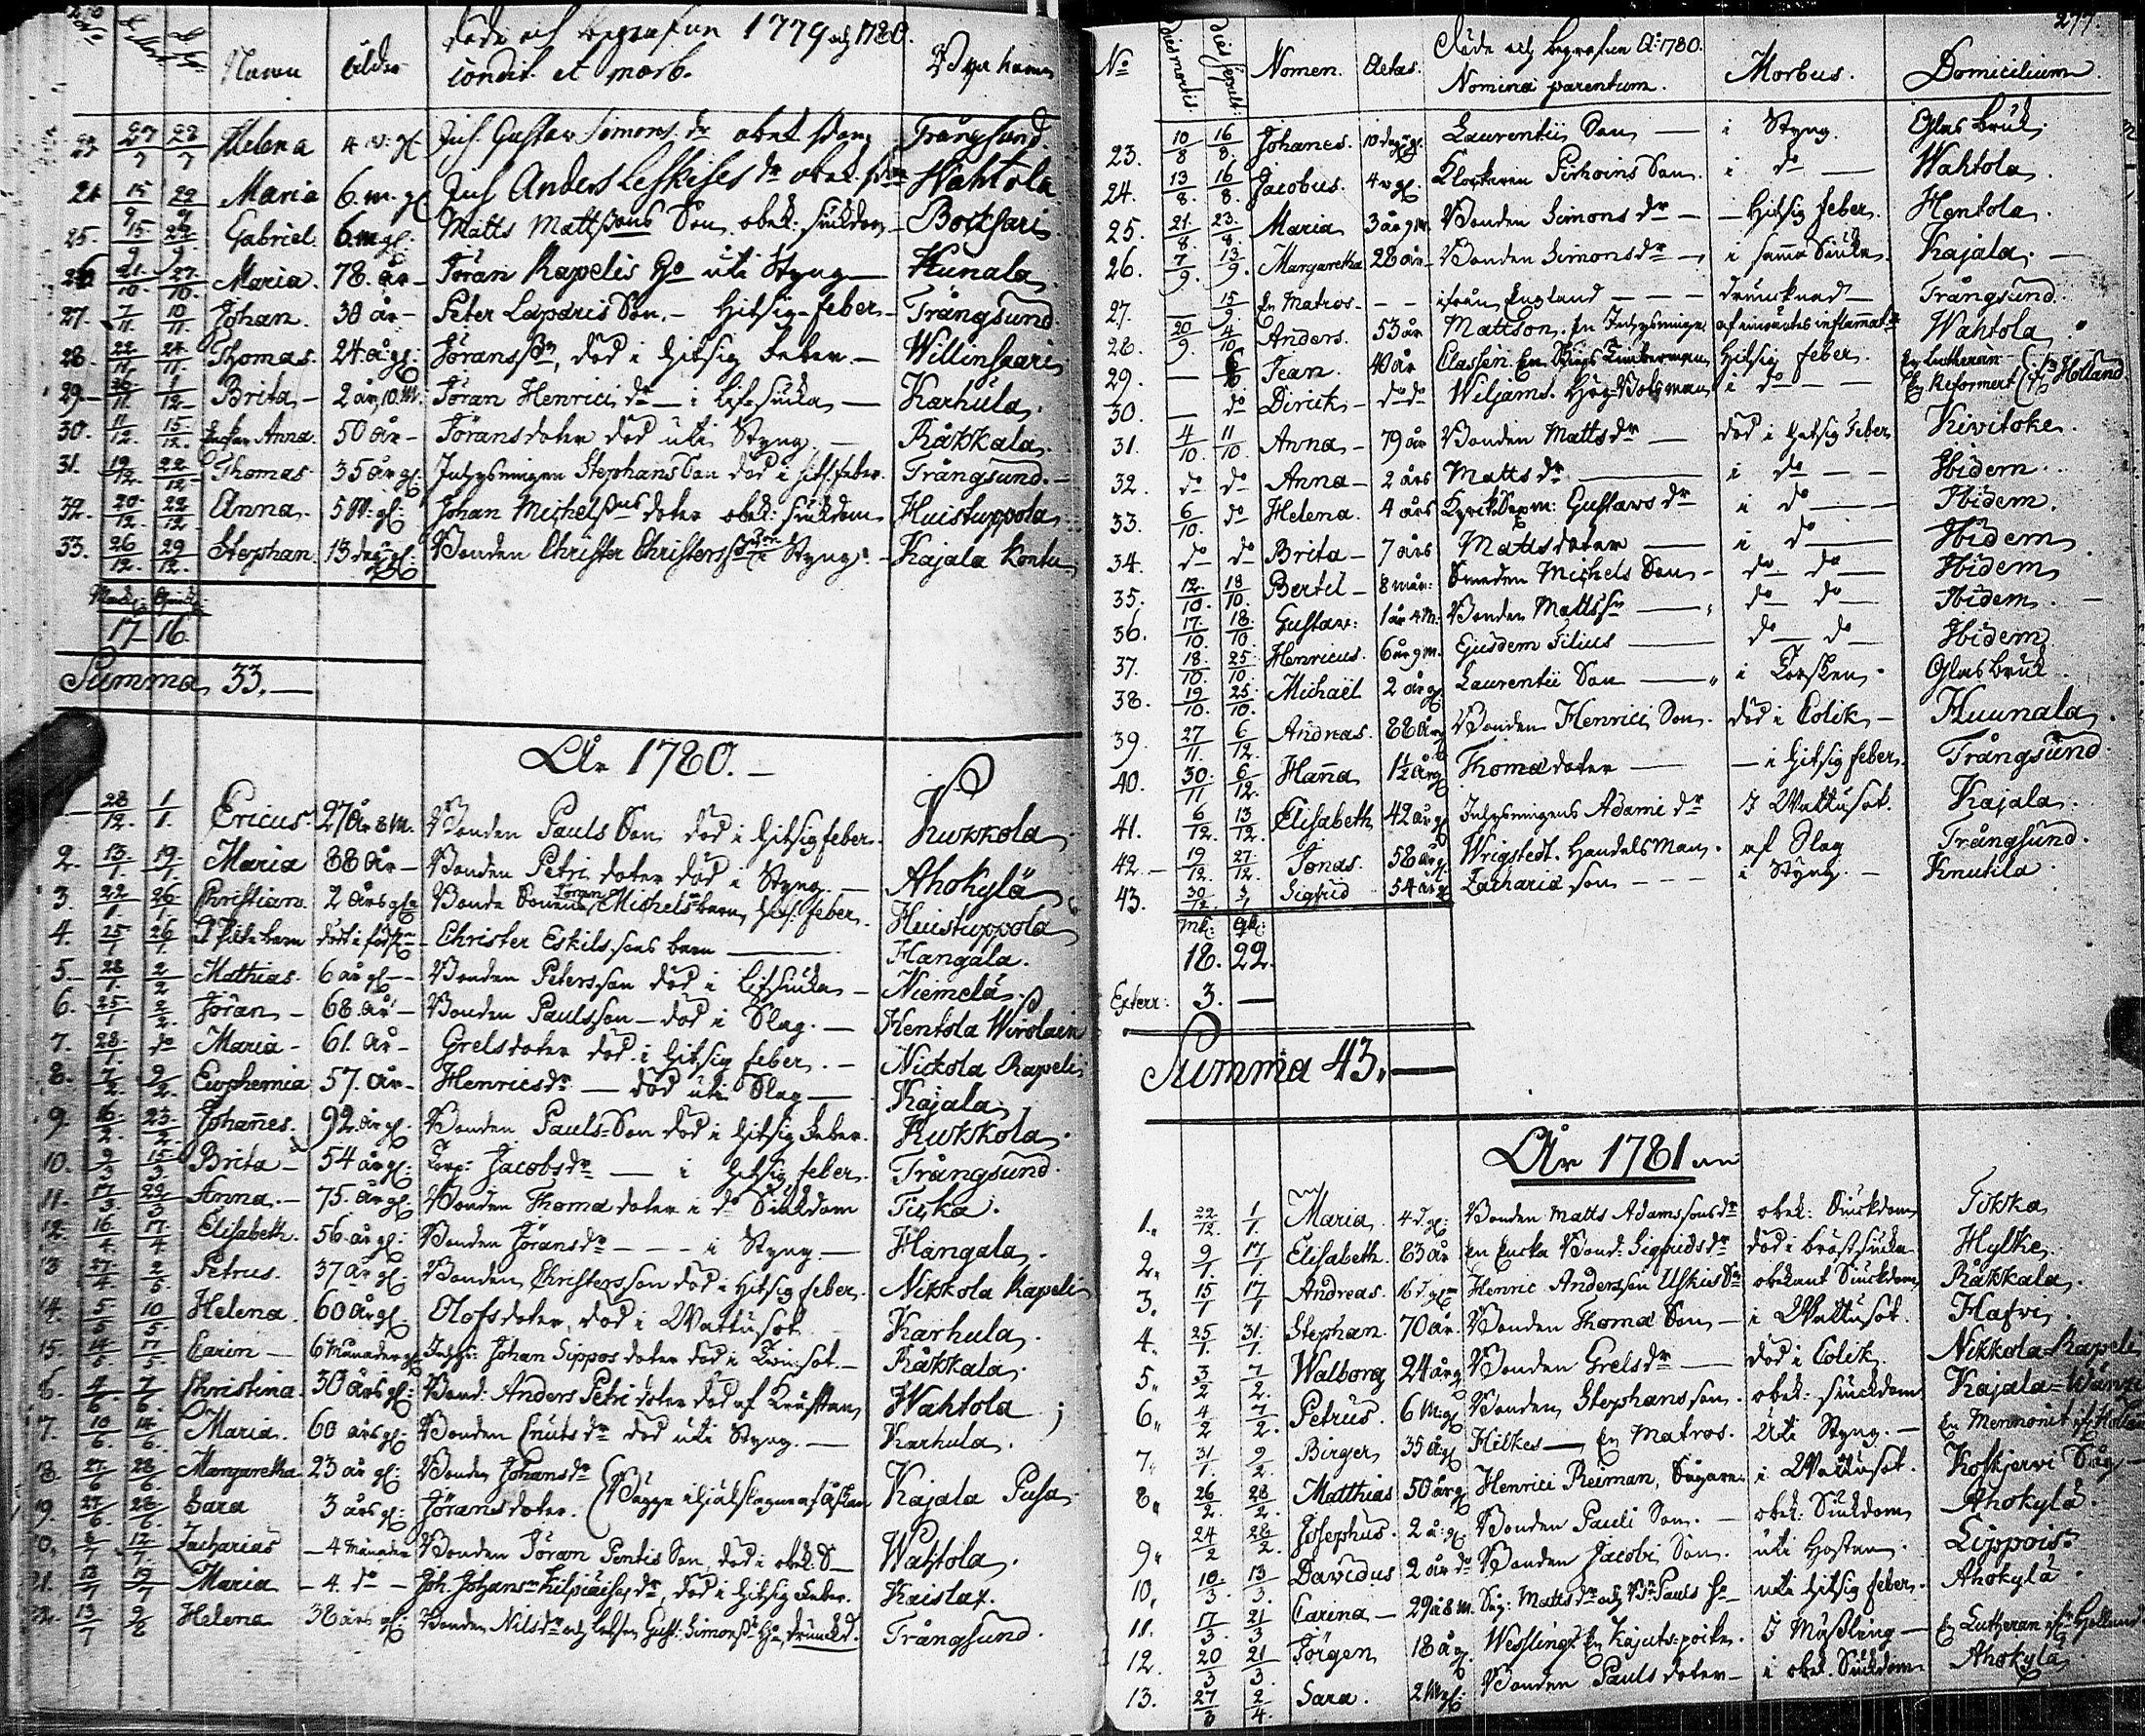 Döde och begrafne 1779 och 1780.
Namn Ålder Condit. et morb. Bya hemm
23. 27/7 28/7 Helena 4 v: gl. Inh. Gustav Simons dr obek sdom Trångsund.
24 15/9 22/9 Maria 6. m. gl Inh Anders Leskises dr obek. Wahtola
25. 15/9 22/9 Gabriel 6. m gl: Matts Mattssons Son obek: siukdom Boitsari
26 21/10. 27/10. Maria. 78. år Jöran Rapelis Ho uti Styng Kunala
27. 7/11. 10/11. Johan. 38 år Peter Laparis Son. Hitsig feber Trångsund.
28. 22/11. 24/11. Thomas. 24 å: gl: Jöransson, död i hitsig Feber Willinsaari
29 30/11. 1/12 Brita 2 år, 10. M: Jöran Henrici dr i Lifsiuka Karhula.
30. 11/12. 15/12. Enkan Anna. 50 år Jöransdoter död uti Styng. Räkkala.
31. 19/12. 22/12 Thomas 35 år gl: Inhysningen Stephans Son död i hits. feber. Trångsund.
32. 20/12. 22/12 Anna. 5 M: gl: Johan Michelssons doter obek: siukdom Huistuppola
33. 26/12. 29/12. Stephan. 13 dagar gl: Bonden Christer Christerss Son i Styng: Kajala Kontu
Mank: Qvink:
17 16
Summa 33.
År 1780.
28/12. 1/1. Ericus 27 år 8 M. Bonden Pauls Son död i hitsig feber Kukkola
2. 13/1. 19/1. Maria 88 år Bonden Petri doter död i Styng. Ahokylä
3. 22/1. 26/1. Christian. 2 års gl: Bonde Sonens Jöran Michels barn, hits. feber. Huistuppola
4. 25/1 26/1. Christer Eskils sons barn Hangala.
5. 28/1. 2/2 Mathias. 6 år gl Bonden Petersson död i Lifsiuka Niemelä.
6. 25/1 2/2. Jöran 68. år Bonden Paulsson död i Slag. Hentola Wirolain
7. 28/1. do Maria 61. år Grelsdoter död i hitsig feber. Nickola Rapeli
8. 7/2. 9/2. Euphemia 57. år Henricsdr död uti Slag Kajala
9. 16/2. 23/2. Johannes. 92. år gl. Bonden Pauls Son död i hitsig Feber. Kukkola.
10. 9/3 15/3. Brita 54 år gl: Torp: Jacobs dr i hitsig feber Trångsund.
11. 17/3. 22/3 Anna. 75. år gl: Bonden Thomæ doter i do Siukdom Tiska.
12. 16/4 17./4 Elisabeth. 56. år gl: Bonden Jörans dr i Styng Hangala.
13 27./4 2/5. Petrus. 37 år gl. Bonden Christersson död i hitsig feber. Nikkola Rapeli
14. 5/5 10/5 Helena. 60 år gl. Olofsdoter, död i Wattusot Karhula.
15. 14/5 17/5. Carin 6 månader gl Inhys: Johan Sippos doter död i Twinsot. Räkkala.
6. 4/6. 7/6. Christina. 30 års gl: Bond: Anders Petri doter död af Kräftan Wahtola
7. 10/6. 14/6. Maria. 60 års gl: Bonden Cnuts dr död uti Styng. Karhula.
18. 27/6 28/6. Margaretha 23 år gl: Bonden Johans dr
19. 27/6. 28/6. Sara 3 års gl: Jörans doter. (Bägge ihjälslagne af åskan Kajala Pusa
0. 8/7 12/7. Zacharias 4 Månader Bonden Jöran Pentis Son, död i obek. S Wahtola.
21. 12/7 19/7 Maria 4. do Joh. Johans dr, död i hitsig Feber. Kaislax.
22. 13/7 2/8 Helena 38 års gl: Bonden Nils dr och Gust: Simons Ho, drunckd. Trångsund.
277.
Döde och begrafne Ao 1780.
No Dies mortis. Dies sepult: Nomen. Aetas. Nomina parentum. Morbus. Domicilium.
23. 10/8 16/8. Johanes. 10 dagar gl. Laurentii Son i Styng. Glasbruk
24. 13/8. 16/8. Jacobus. 4 v gl. Klockaren Pirhoins Son. i do Wahtola.
25. 21./8. 23./8 Maria 3 år 9 M. Bonden Simons dr Hitsig feber. Hentola.
26. 7/9. 13/9. Margaretha 28 år Bonden Simons dr i samma Siuka. Kajala.
27. 15/9. En Matros ifrån England druncknad Trångsund.
28. 20/9. 4/10 Anders. 53 år Mattson. En Inhysninge af inwärtes inflammat: Wahtola
29. 6/10 Jean. 40 år Classen. En Skieps Timberman Hitsig feber. En Lutheran
30 do Dirick do do Wiljams. Hög-Botsman i do En Reformert från Holland
31. 4/10. 11/10. Anna 79 år Bonden Matts dr död i hetsig Feber Kivitoke.
32. do do Anna 2 års Matts dr i do Ibidem.
33. 6/10. do Helena. 4 års Gustavs dr i do Ibidem.
34. do do Brita 7 års Mattsdoter i do Ibidem
35. 12./10. 18/10. Bertil 8 mån: Smeden Michels Son do do Ibidem
36. 17./10 18./10 Gustav: 1 år 4 M: Bonden Matts Sn do do Ibidem.
37. 18./10. 25./10. Henricus. 6 år 9 m. Ejusdem Filius do do Ibidem
38. 19/10. 25./10. Michaël 2 år gl Laurentii Son i Torsken Glasbruk.
39. 27/11. 6/12. Andreas. 88 år Bonden Henrici Son. död i Colik Huunala.
40. 30./11 6/12. Hanna 1½ år gl Thomæ doter i hitsig feber. Trångsund.
41. 6/12. 13/12. Elisabeth 42 år gl Inhysningens Adami dr I Wattusot. Kajala.
42. 19/12. 27/12. Jonas. 58 år gl Wrigstedt. Handelsman. af Slag Trångsund.
43. 30/12. 3/1 Sigfrid 54 år gl Zachariæ son i Styng. Knutila.
Mk: Qk:
18. 22.
Exterr: 3.
Summa 43.
År 1781
1. 22/12. 1/1. Maria. 4 d. gl: Bonden Matts Adamssons dr obek: Siuckdom Tökka
2. 9/1 17/1. Elisabeth. 83 år En Encka Bond: Sigfrids dr död i bröstsiuka Hylke.
3. 15/1 17/1 Andreas. 16 d. gl Henric Andersson Uskis Sn obekant Siuckdom Räkkala.
4. 25/1 31./1. Stephan. 70 år. Bonden Thomæ Son i Wattusot. Hafvi.
5. 3/2 7/2. Walborg 24 år gl Bonden Grels dr död i Colik. Nikkola Rapeli
6. 4/2 7/2. Petrus. 6 M: gl Bonden Stephansson. obek: siuckdom Kajala
7. 31/1. 9/2. Birger 35 å gl Hilkes En Matros. Uti Styng. En Mennonit ifr Hollan
8. 26/2. 28/2. Matthias 50 år gl Henrici Reiman, Sågare i Wattusot. Koskjervi Såg
9. 24/2 28/2. Josephus. 2 å: gl. Bonden Pauli Son. obek: Siukdom Ahokylä.
10. 10./3. 13/3. Davidus 2 år do Bonden Jacobi Son. uti Hostan. Lippois.
11. 17/3. 21/3 Carina 29 å 8 M. Matts dr och Pauls Ho uti hitsig feber. Ahokylä.
12. 20/3 21/3. Jörgen 18 år gl. Wesslings En Kajuts-poike. I Mässling En Lutheran ifr Holland
13. 27/3 2/4. Sara. 2 M gl: Bonden Pauls doter i obek. Siukdom Ahokylä.